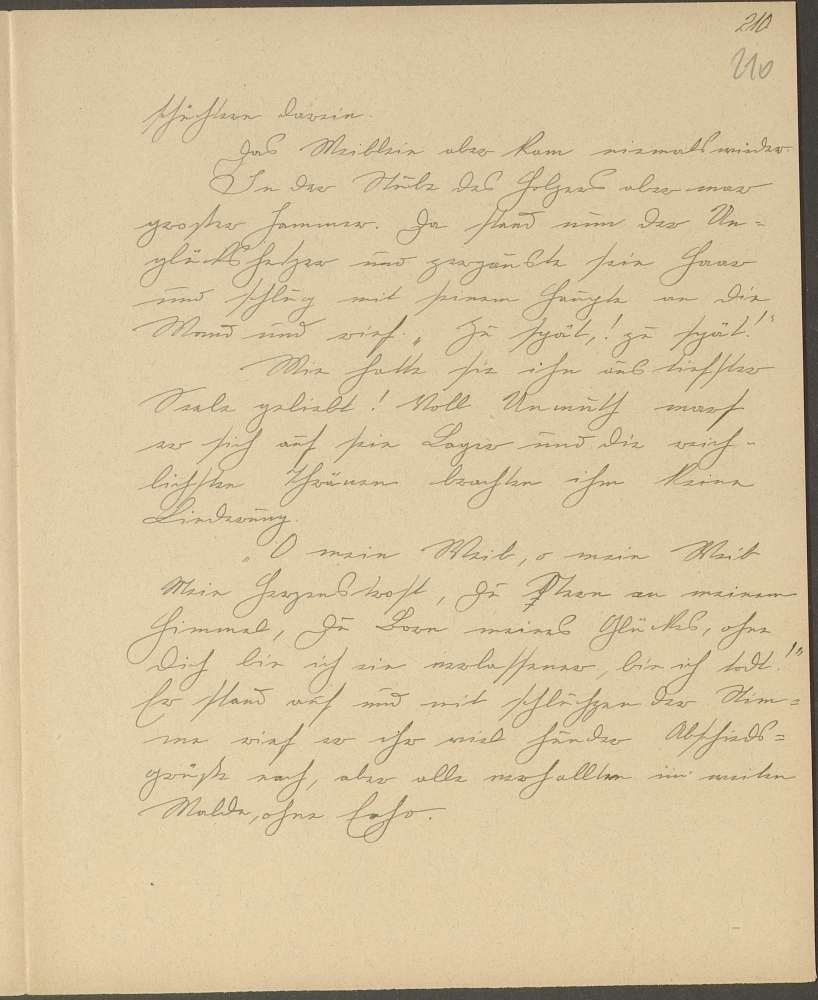 210
210
schüchtern darein.
Das Weiblein aber kam niemals wieder.
In der Stube des Holzers aber war
großer Jammer. Da stand nun der Un=
glücksholzer und zerzauste sein Haar
und schlug mit seinem Haupte an die
Wand und rief: „Zu spät,! zu spät!"
Wie hatte sie ihn aus tiefster
Seele geliebt! Voll Unmuth warf
er sich auf sein Lager und die reich-
lichsten Thränen brachten ihm keine
Linderung.
„O mein Weib, o mein Weib
Mein Herzenstrost, Du Stern an meinem
Himmel, Du Born meines Glückes, ohne
Dich bin ich ein verlassener, bin ich todt!"
Er stand auf und mit schluchzender Stim=
me rief er ihr viel hundert Abschieds=
grüße nach, aber alle verhallten im weiten
Walde, ohne Echo.